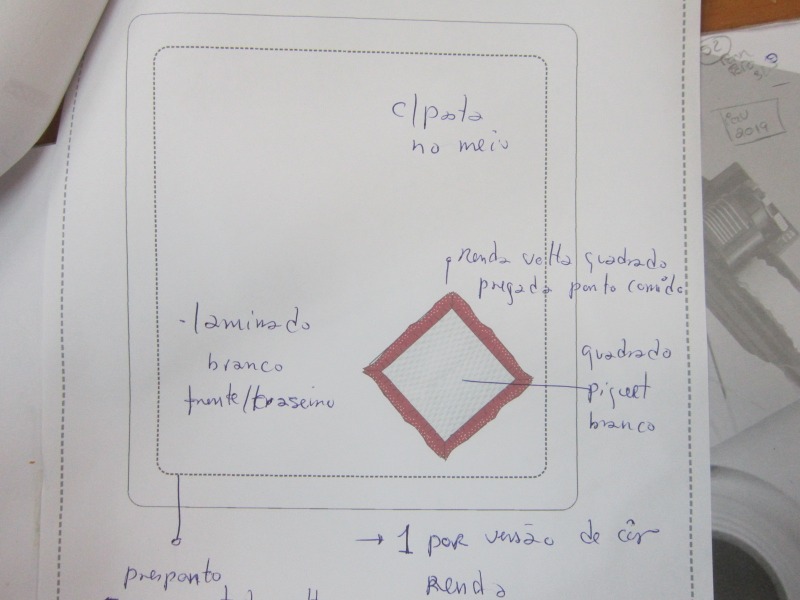 c/pasta
no meio
Renda volta quadrado
pregada ponto comido
- laminado
branco
frente/traseiro
quadrado
piquet
branco
→ 1 por versão de côr
Renda
presponto
2019